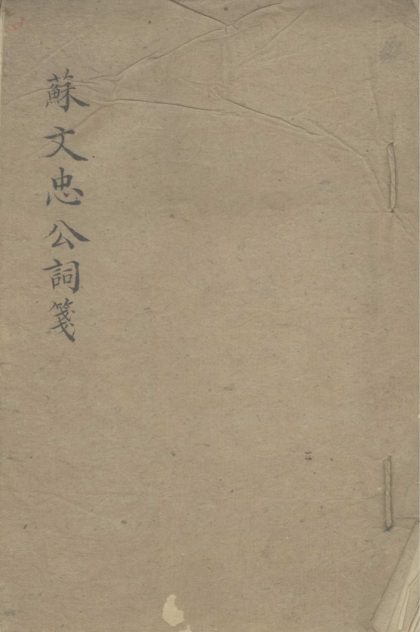 蘇文忠公詞箋